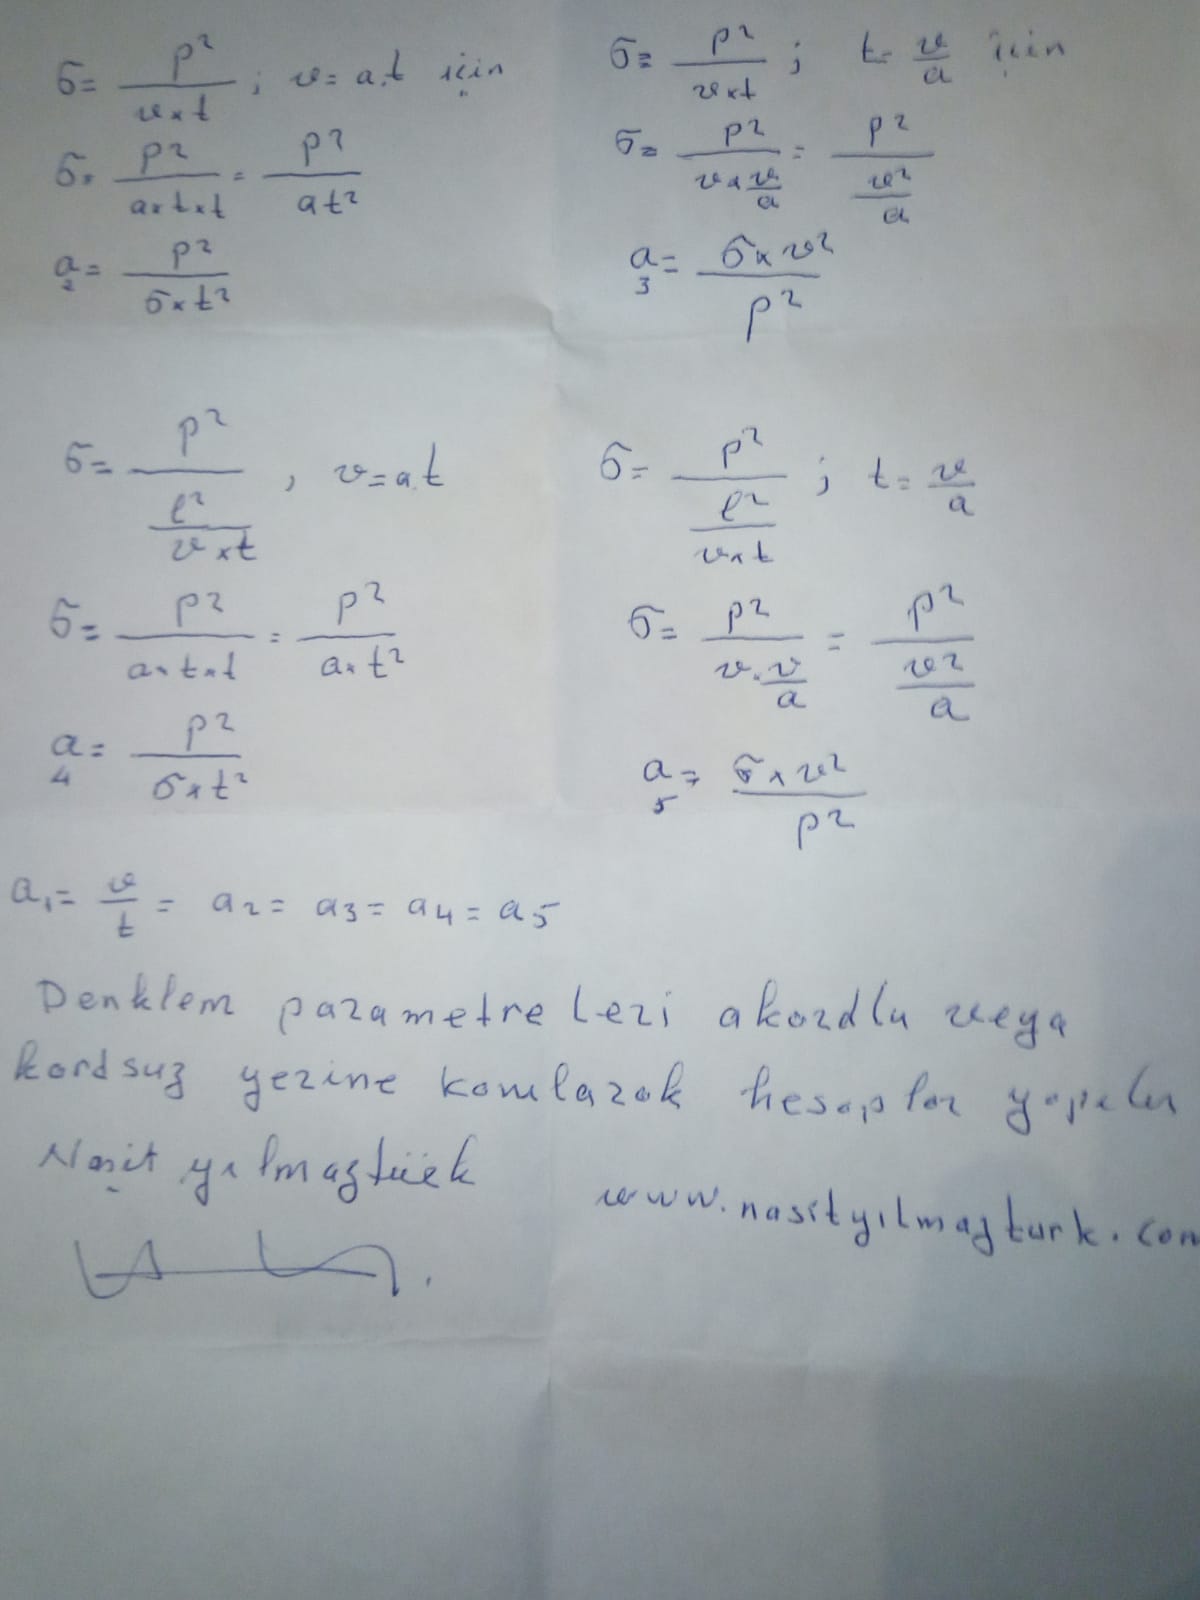 σ = p² / (v × t) ; v = a.t için
σ = p² / (a × t × t) = p² / at²
a₂ = p² / (σ × t²)
σ = p² / (v × t) ; t = v/a için
σ = p² / (v × v/a) = p² / (v²/a)
a₃ = (σ × v²) / p²
σ = p² / (ℓ² / (v × t)) , v = a.t
σ = p² / (a × t × t) = p² / (a × t²)
a₄ = p² / (σ × t²)
σ = p² / (ℓ² / (v × t)) ; t = v/a
σ = p² / (v . v/a) = p² / (v²/a)
a₅ = (σ × v²) / p²
a₁ = v/t = a₂ = a₃ = a₄ = a₅
Denklem parametreleri akordlu veya
kordsuz yerine konularak hesaplar yapılır
Naşit yılmaztürk
www.nasityılmazturk.com